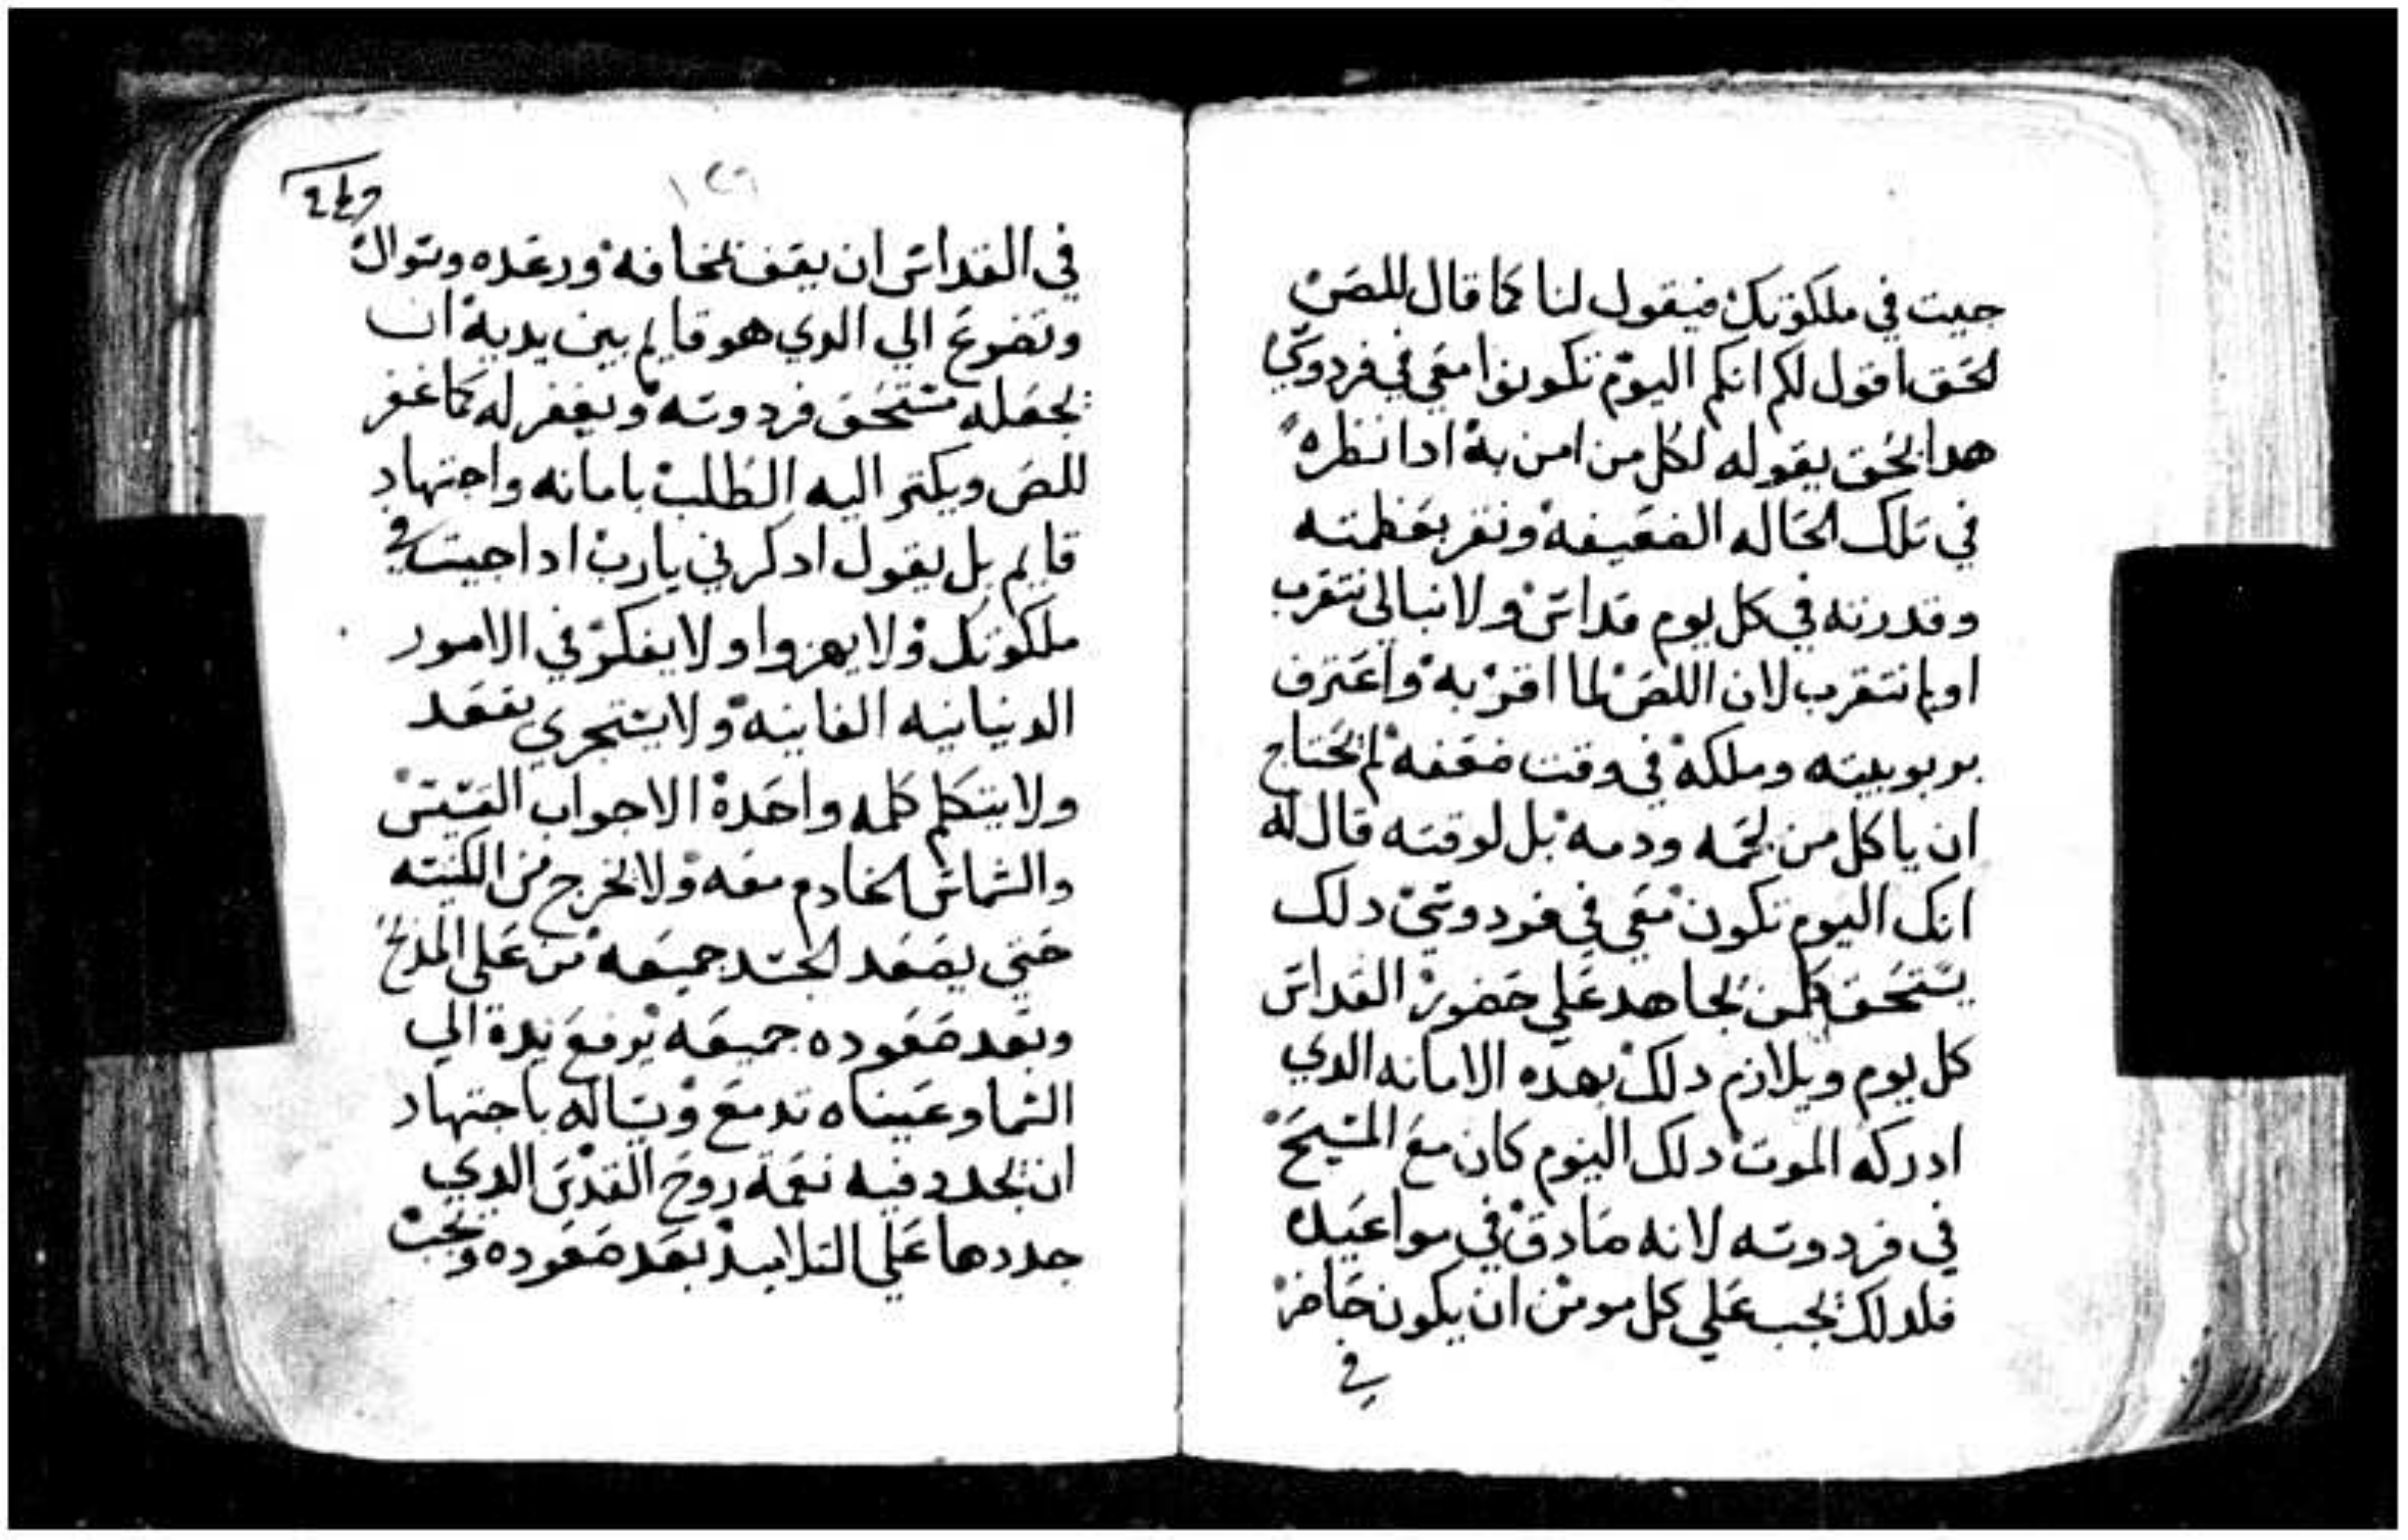 جيت في ملكوتك فيقول لنا كما قال للص
لحق اقول لكم انكم اليوم تكونوا معي في فردوسي
هدا الحق يقوله لكل من امن به ادا نظره
في تلك الحاله الضعيفه ونقر بعظمته
وقدرته في كل يوم قداس ولا نبالي نتقرب
او لم نتقرب لان اللص لما اقر به واعترف
بربوبيته وملكه في وقت ضعفه لم يحتاج
ان ياكل من لحمه ودمه بل لوقته قال له
انك اليوم تكون معي في فردوسي دلك
يستحق كلمن يجاهد علي حضور القداس
كل يوم ويلازم دلك بهده الامانه الدي
ادركه الموت دلك اليوم كان مع المسيح
في فردوسه لانه صادق في مواعيده
فلدلك يجب علي كل مومن ان يكون حاضر
في
١٢٦
في القداس ان يقف بمخافه ورعده وسوال
وتضرع الي الدي هو قايم بين يديه ان
يجعله مستحق فردوسه ويغفر له كما غفر
للص ويكتر اليه الطلب بامانه واجتهاد
قايم بل يقول ادكرني يارب ادا جيت في
ملكوتك ولا يهزوا ولا يفكر في الامور
الدنيانيه الفانيه ولا يستجري يقعد
ولا يتكلم كلمه واحده الا جواب القسيس
والشماس الخادم معه ولا يخرج من الكنيسه
حتي يصعد الجسد جميعه من علي المدبح
وبعد صعوده جميعه يرفع يده الي
السما وعيناه تدمع ويساله باجتهاد
ان يجدد فيه نعمة روح القدس الدي
جددها علي التلاميد بعد صعوده ويجب